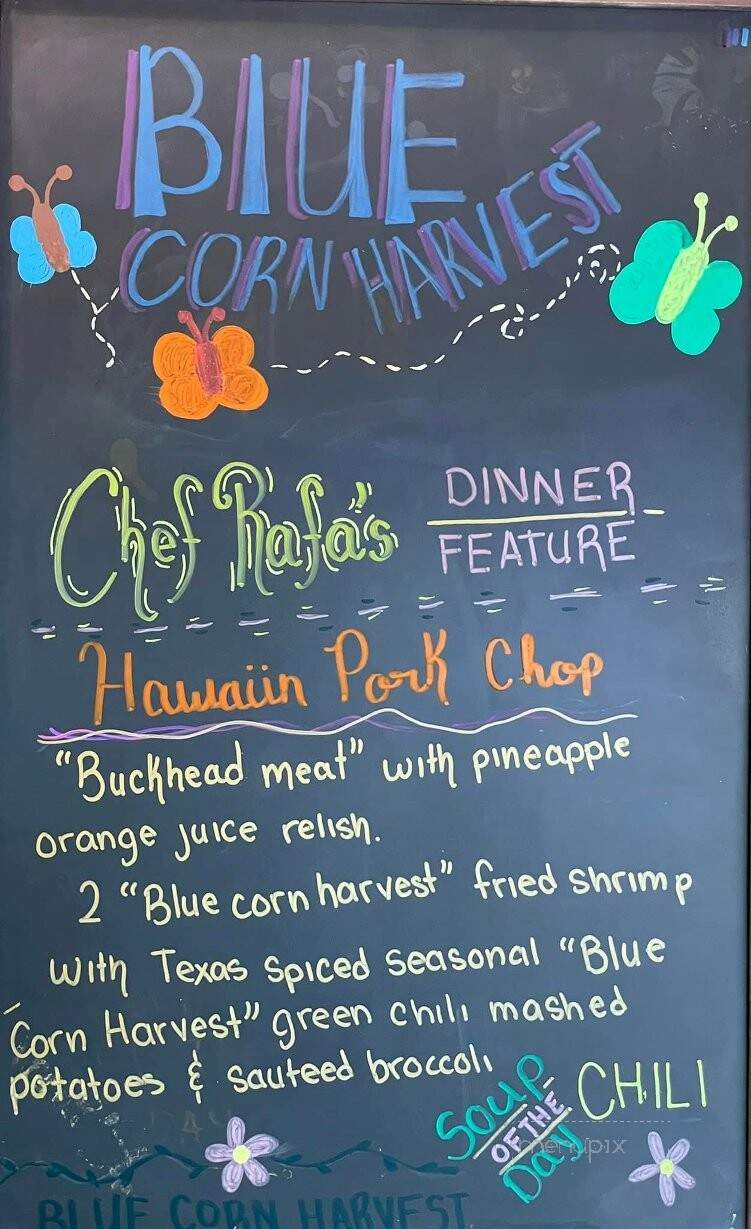 BLUE
CORN HARVEST
Chef Rafa's
DINNER
FEATURE
Hawaiin Pork Chop
"Buckhead meat" with pineapple
orange juice relish.
2 "Blue corn harvest" fried shrimp
with Texas spiced seasonal "Blue
Corn Harvest" green chili mashed
potatoes & sauteed broccoli
Soup
OF THE
Day
CHILI
menupix
BLUE CORN HARVEST